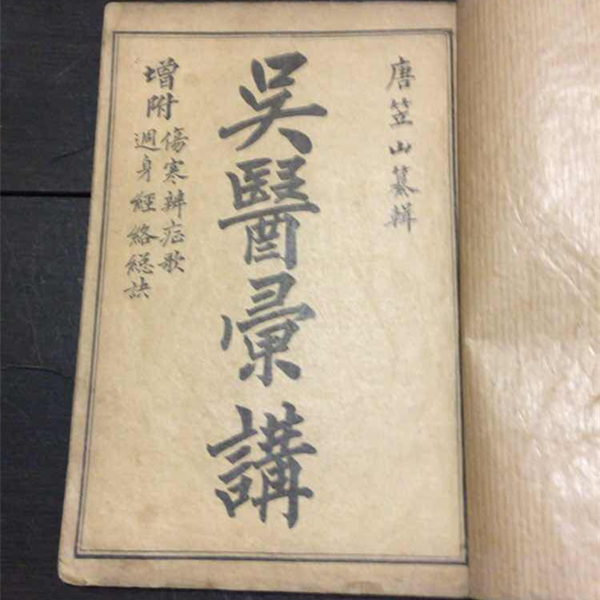 唐笠山纂輯
吳醫彙講
增附
傷寒辨症歌
週身經絡總訣